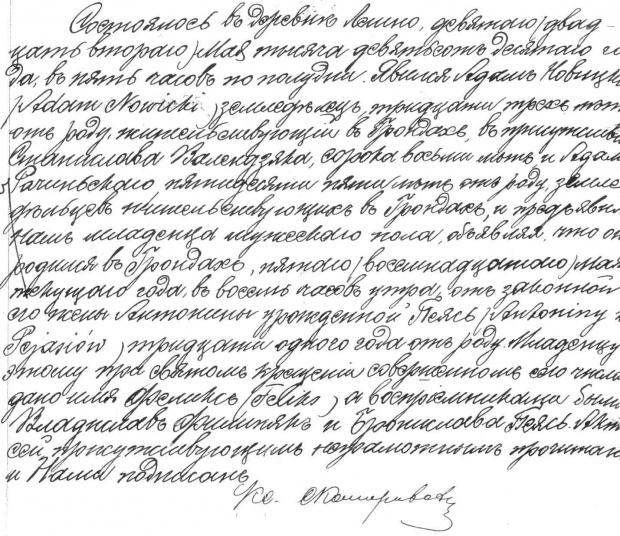 Состоялось въ деревнѣ Лешно, девятаго /двад-
цать втораго/ Мая тысяча девятьсотъ десятаго го
да, въ пять часовъ по полудни. Явился Адамъ Новицкі
/Adam Nowicki/ земледѣлецъ, тридцати трехъ лѣтъ
отъ роду, жительствующій въ Грондахъ, въ присутстві
Станислава Валендзяка, сорока восьми лѣтъ и Адам
Рачиньскаго, пятидесяти пяти лѣтъ отъ роду, земле
дѣльцевъ жительствующихъ въ Грондахъ, и предъявил
намъ младенца мужескаго пола, объявляя, что он
родился въ Грондахъ, пятаго /восемнадцатаго/ мая
текущаго года, въ восемь часовъ утра, отъ законной
его жены Антонины урожденной Пеясь /Antoniny z
Pejasiów/ тридцати одного года отъ роду. Младенцу
этому при святомъ крещеніи совершенномъ сего числа
дано имя Феликсъ /Feliks/ а воспріемниками были
Владиславъ Филипякъ и Бронислава Пеясь. Актъ
сей, присутствующимъ неграмотнымъ прочитан
и Нами подписанъ.
Кс.